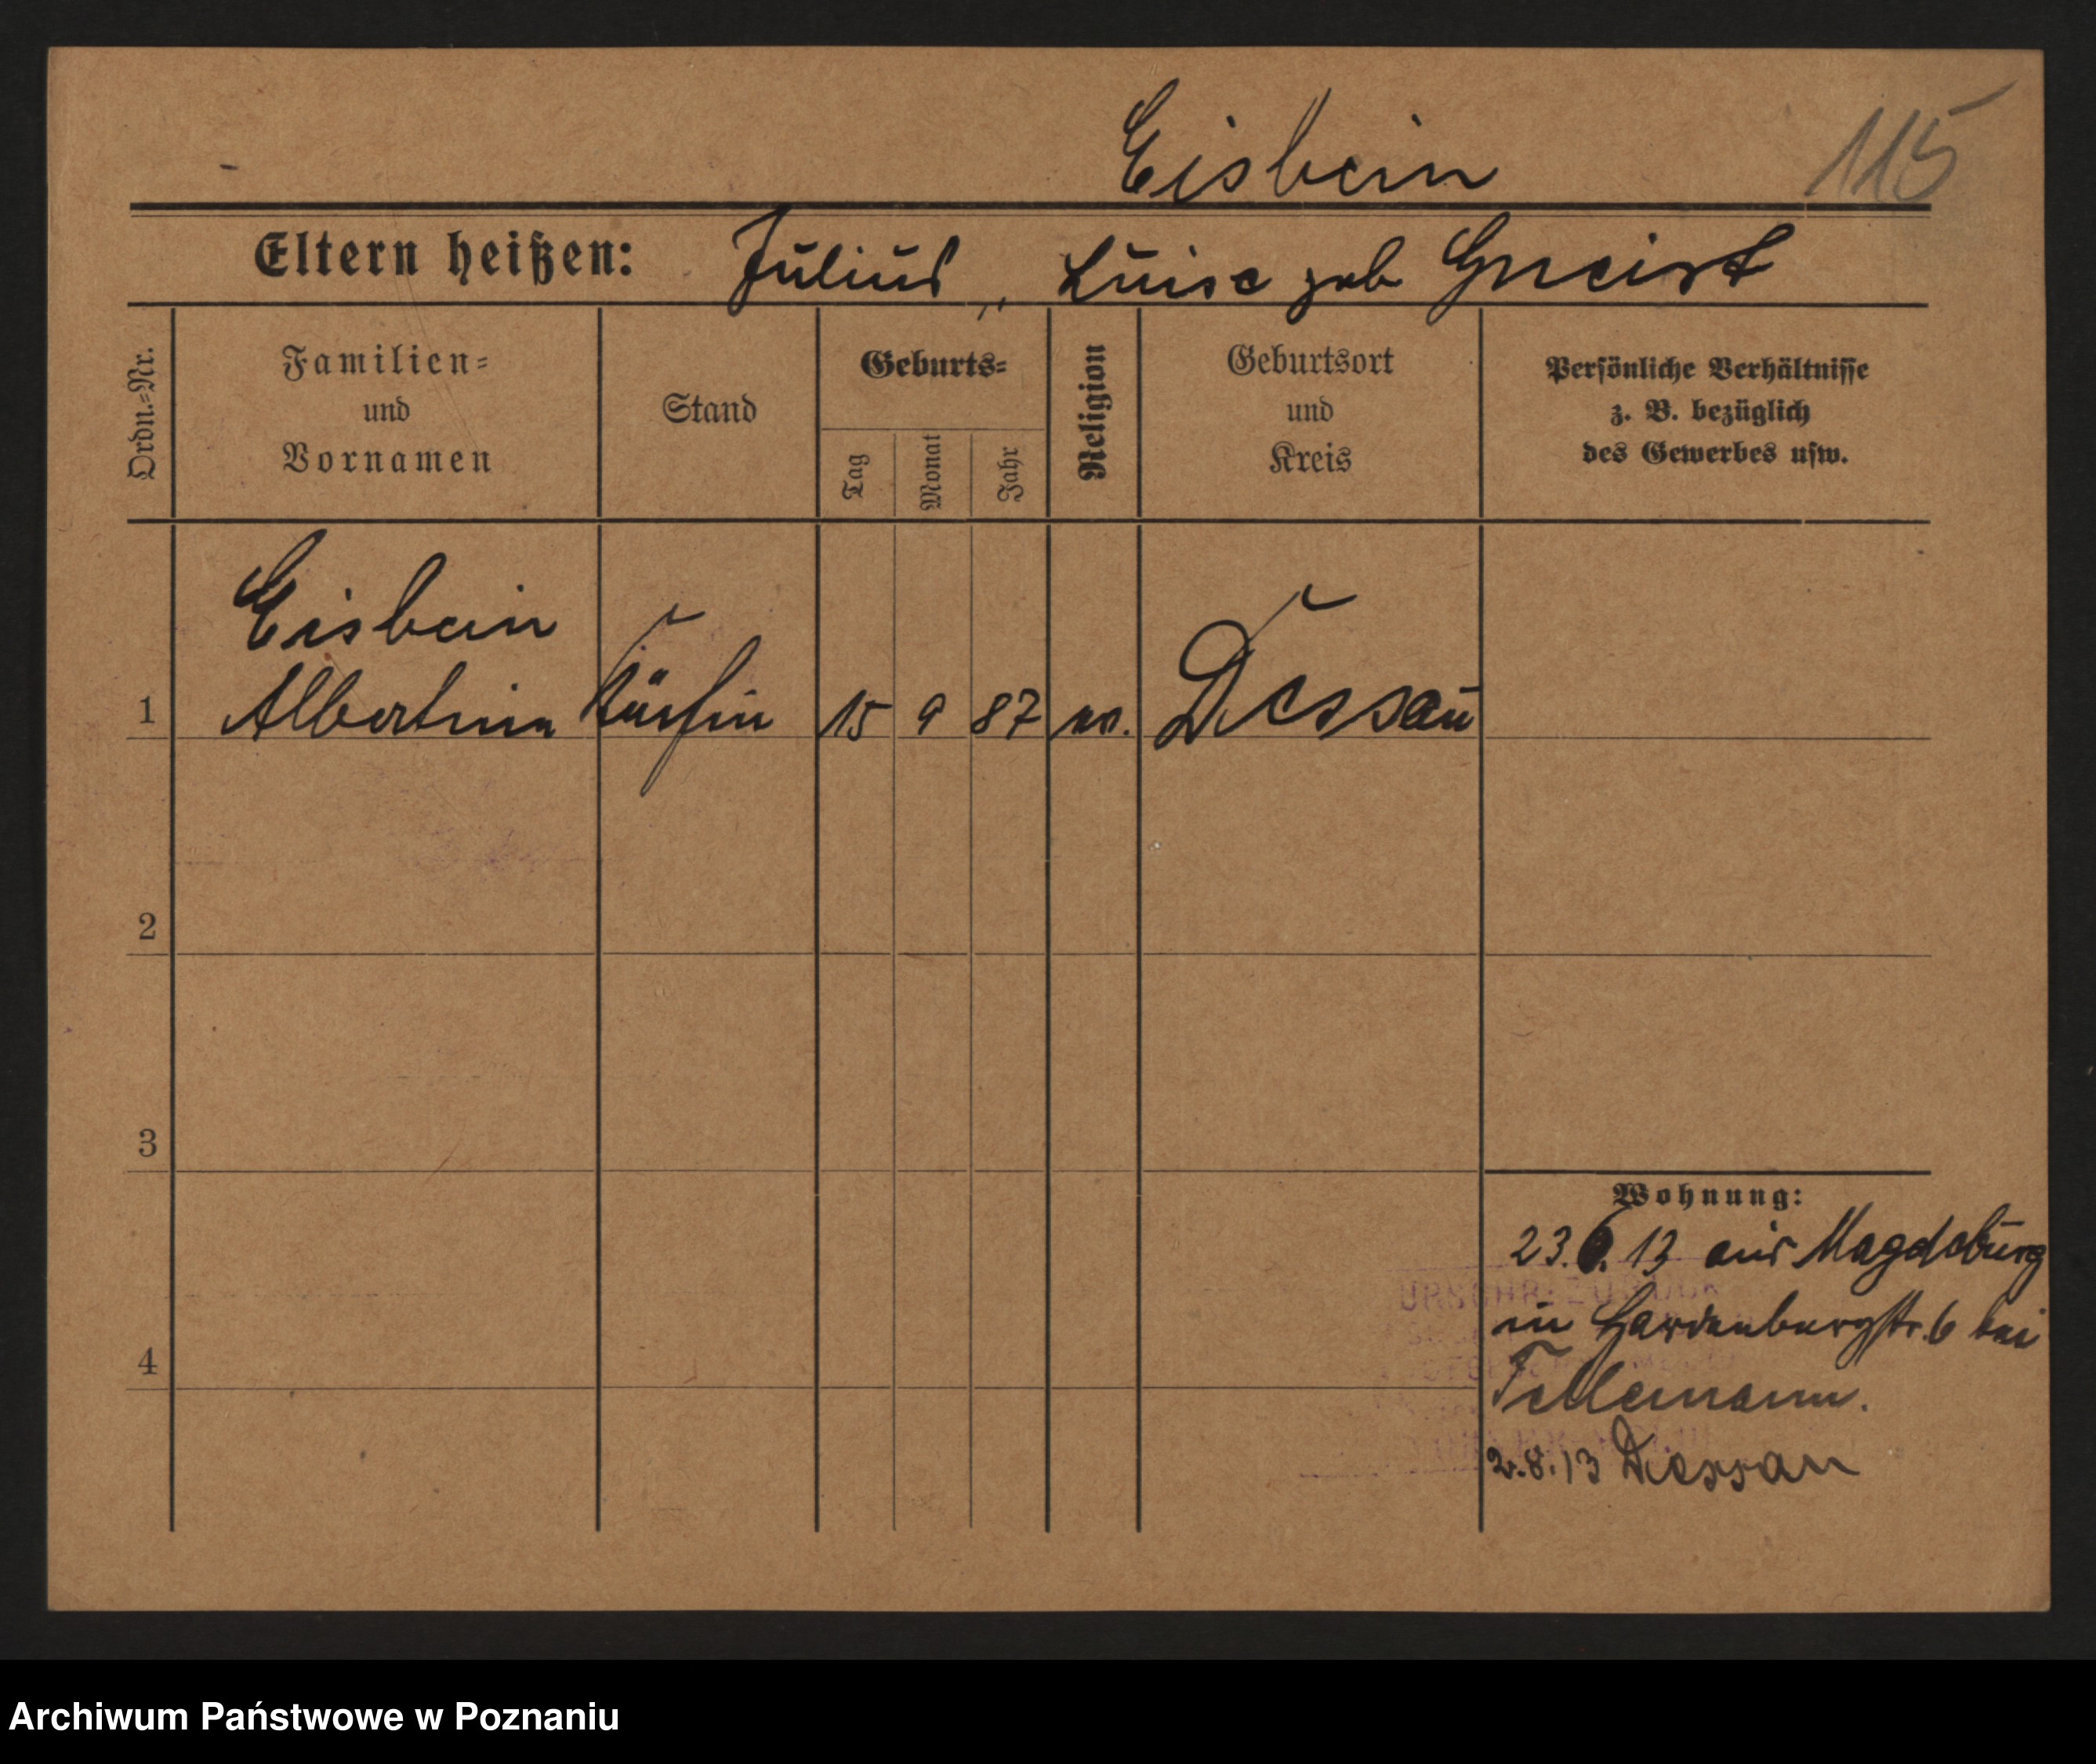 Eisbein 115
Eltern heißen: Julius, Luise geb Gneist
Ordn.=Nr.
Familien=
und
Vornamen
Stand
Geburts=
Tag
Monat
Jahr
Religion
Geburtsort
und
Kreis
Persönliche Verhältnisse
z. B. bezüglich
des Gewerbes usw.
Eisbein
1 Albertine 15 9 87 ev. Dessau
2
3
Wohnung:
23.6.13 aus Magdeburg
in Hardenbergstr. 6 bei
4
Tellemann.
2.8.13 Dessau
Archiwum Państwowe w Poznaniu